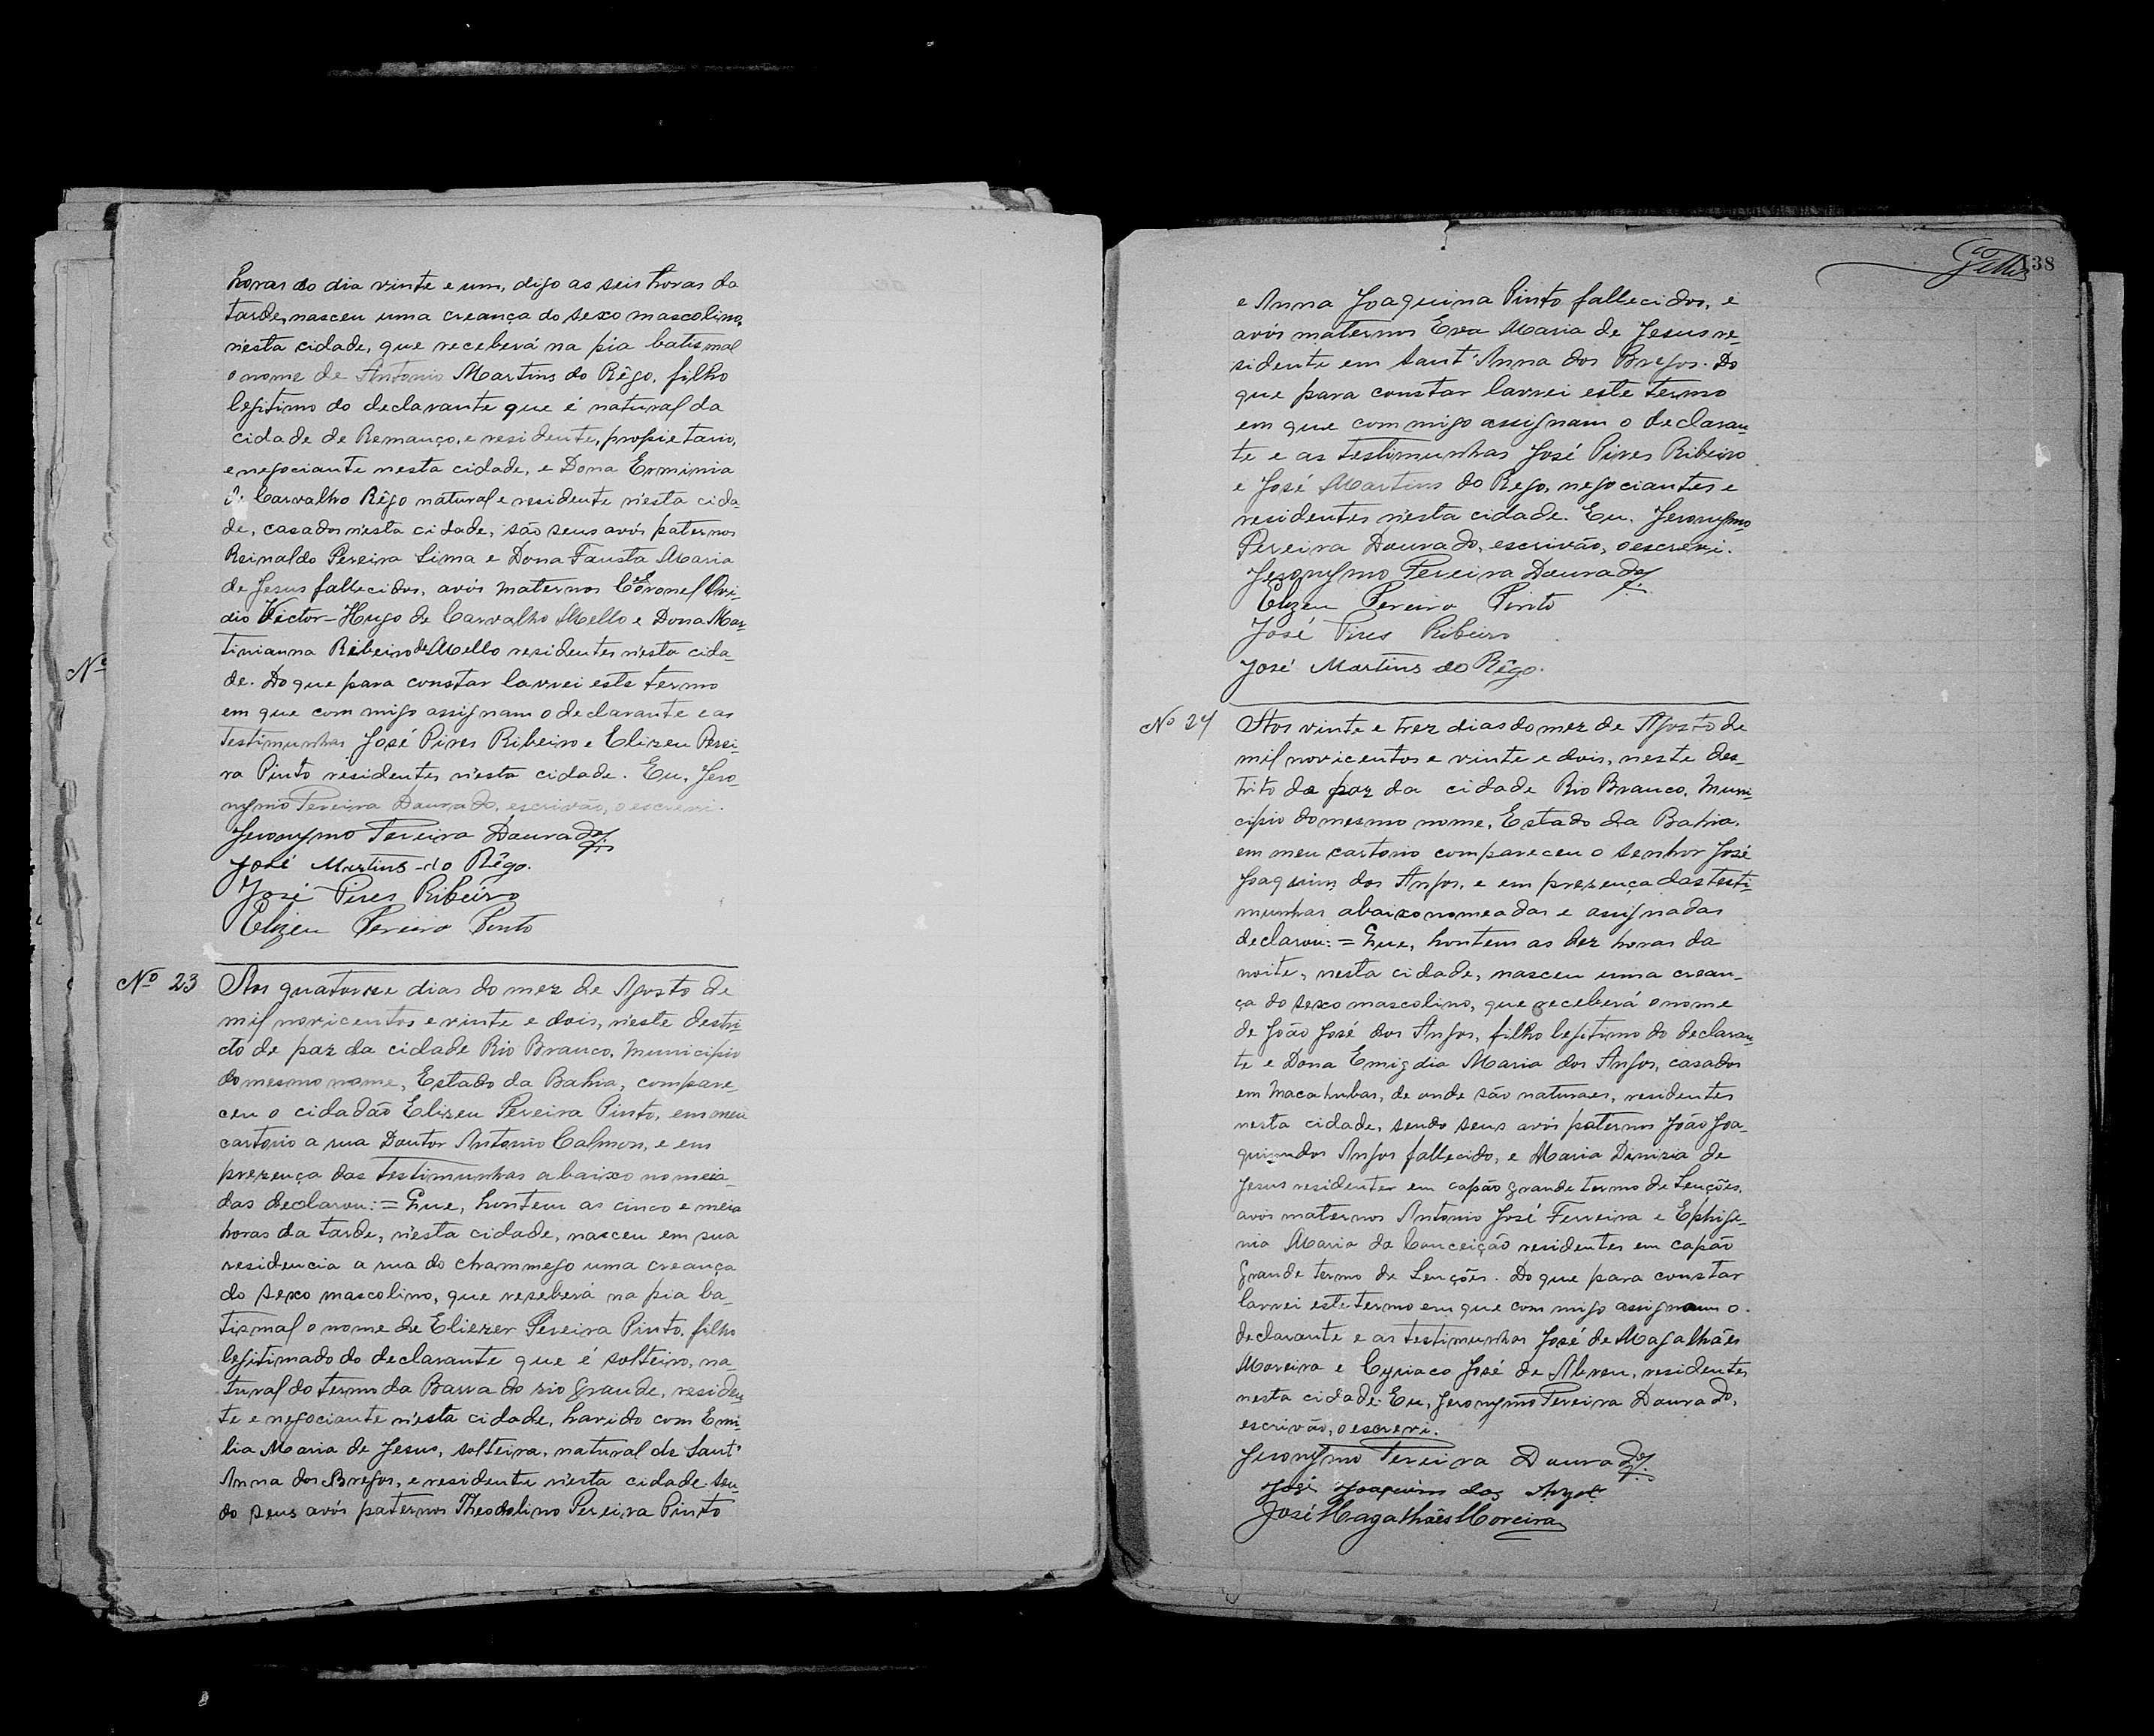 horas do dia vinte e um, digo as seis horas da
tarde, nasceu uma creança do sexo mascolino,
n'esta cidade, que receberá na pia batismal
o nome de Antonio Martins do Rêgo, filho
legitimo do declarante que é natural da
cidade de Remanço, e residente, propietario,
e negociante nesta cidade, e Dona Erminia
de Carvalho Rêgo natural e residente n'esta cida-
de, casados n'esta cidade, são seus avós paternos
Reinaldo Pereira Lima e Dona Fausta Maria
de Jesus fallecidos, avós maternos Coronel Ovi-
dio Victor-Hugo de Carvalho Mello e Dona Mar-
tinianna Ribeiro de Mello residentes n'esta cida-
de. Do que para constar lavrei este termo
em que commigo assignam o declarante e as
testimunhas José Pires Ribeiro e Elizeu Perei-
ra Pinto residentes n'esta cidade. Eu, Jero-
nymo Pereira Dourado, escrivão, o escrevi.
Jeronymo Pereira Dourado
José Martins do Rêgo.
José Pires Ribeiro
Elizeu Pereira Pinto
Nº
Nº 23 Aos quatorze dias do mez de Agosto de
mil novicentos e vinte e dois, n'este destri-
cto de paz da cidade Rio Branco, Municipio
do mesmo nome, Estado da Bahia, compare-
ceu o cidadão Elizeu Pereira Pinto, em meu
cartorio a rua Doutor Antonio Calmon, e em
prezença das testimunhas abaixo nomeia-
das declarou: = Que, hontem as cinco e meia
horas da tarde, n'esta cidade, nasceu em sua
residencia a rua do chammego uma creança
do sexo mascolino, que reseberá na pia ba-
tismal o nome de Eliezer Pereira Pinto, filho
legitimado do declarante que é solteiro, na-
tural do termo da Barra do rio Grande, residen-
te e negociante n'esta cidade, havido com Emi-
lia Maria de Jesus, solteira, natural de Sant'
Anna dos Brejos, e residente n'esta cidade sen-
do seus avós paternos Theodolino Pereira Pinto
138
e Anna Joaquina Pinto fallecidos, e
avós maternos Eva Maria de Jesus re-
sidente em Sant'Anna dos Brejos. Do
que para constar lavrei este termo
em que commigo assignam o declaran-
te e as testimunhas José Pires Ribeiro
e José Martins do Rego, negociantes e
residentes n'esta cidade. Eu, Jeronymo
Pereira Dourado, escrivão, o escrevi.
Jeronymo Pereira Dourado
Elizeu Pereira Pinto
José Pires Ribeiro
José Martins do Rêgo.
Nº 24 Aos vinte e trez dias do mez de Agosto de
mil novicentos e vinte e dois, neste des-
trito da paz da cidade Rio Branco, Muni-
cipio do mesmo nome, Estado da Bahia,
em meu cartorio compareceu o senhor José
Joaquim dos Anjos, e em prezença das testi-
munhas abaixo nomeadas e assignadas
declarou: = Que, hontem as dez horas da
noite, nesta cidade, nasceu uma crean-
ça do sexo mascolino, que receberá o nome
de João José dos Anjos, filho legitimo do declaran-
te e Dona Emigdia Maria dos Anjos, casados
em Macahubas, de onde são naturaes, residentes
nesta cidade, sendo seus avós paternos João Joa-
quim dos Anjos fallecido, e Maria Deniria de
Jesus residentes em capão grande termo de Lenções,
avós maternos Antonio José Ferreira e Ephige-
nia Maria da Conceição residentes em capão
Grande termo de Lenções. Do que para constar
lavrei este termo em que commigo assignam o
declarante e as testimunhas José de Magalhães
Moreira e Cyriaco José de Abreu, residentes
nesta cidade. Eu, Jeronymo Pereira Dourado,
escrivão, o escrevi.
Jeronymo Pereira Dourado
José Joaquim dos Anjos
José Magalhães Moreira